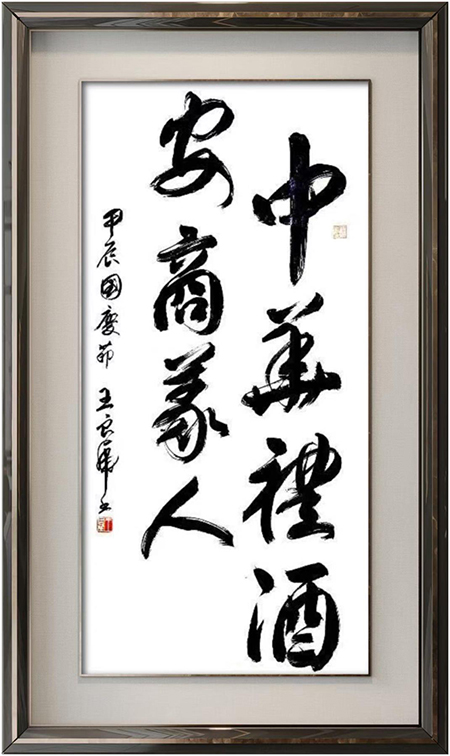 中華禮酒
安商義人
甲辰國慶節 王良